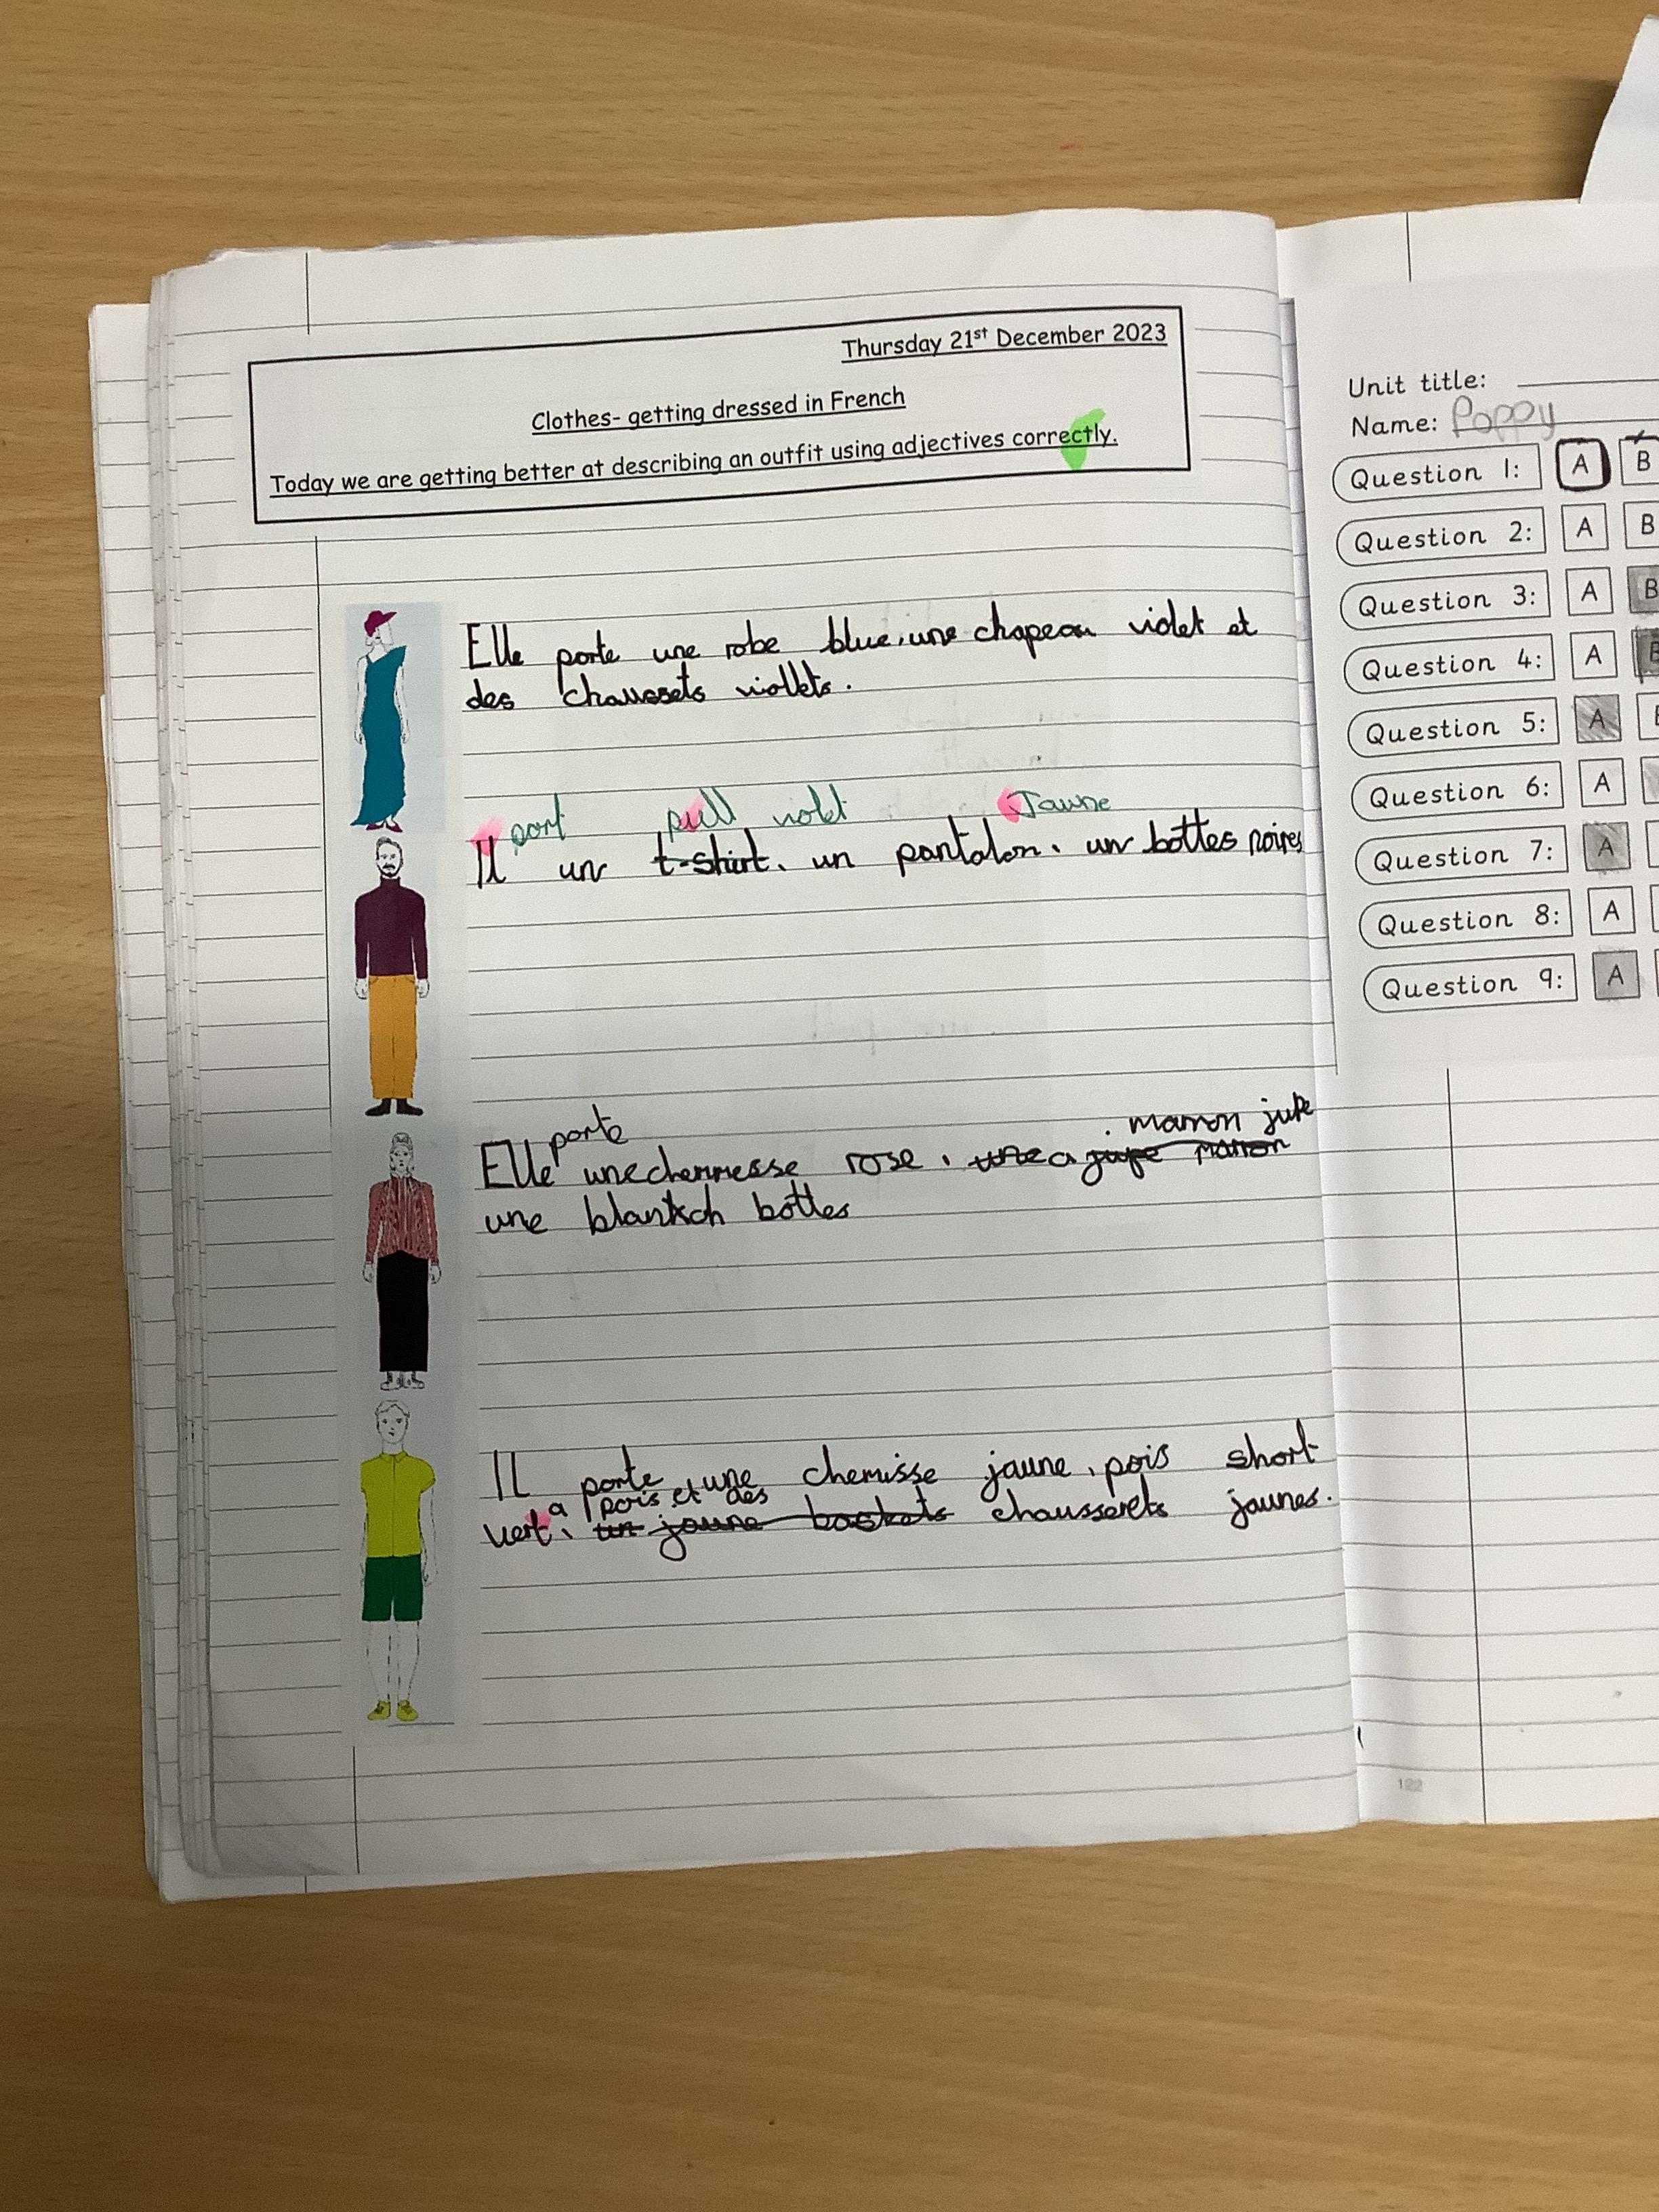 Thursday 21st December 2023
Clothes- getting dressed in French
Today we are getting better at describing an outfit using adjectives correctly.
Elle porte une robe blue, une chapeau violet et
des chaussets viollets.
port pull violet Jaune
Il un t-shirt, un pantalon, un bottes noires
porte . marron jupe
Elle une chemmesse rose, une a jupe marron
une blanksch bottes
Il porte, une chemisse jaune, pois short
a pois et des
vert, un jaune baskets chausserets jaunes.
Unit title:
Name: Poppy
Question 1: A B
Question 2: A B
Question 3: A B
Question 4: A B
Question 5: A
Question 6: A
Question 7: A
Question 8: A
Question 9: A
122